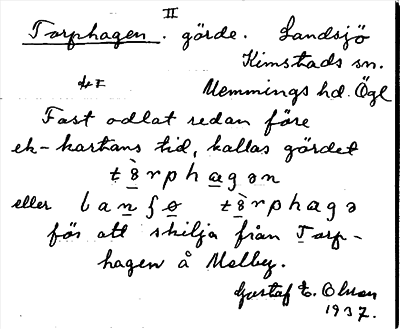 II
Torphagen. gärde. Landsjö
Kimstads sn.
Memmings hd. Ögl
Fast odlat redan före
ek-kartans tid, kallas gärdet
eller
för att skilja från Torp-
hagen å Melby.
Gustaf E. Olson
1937.